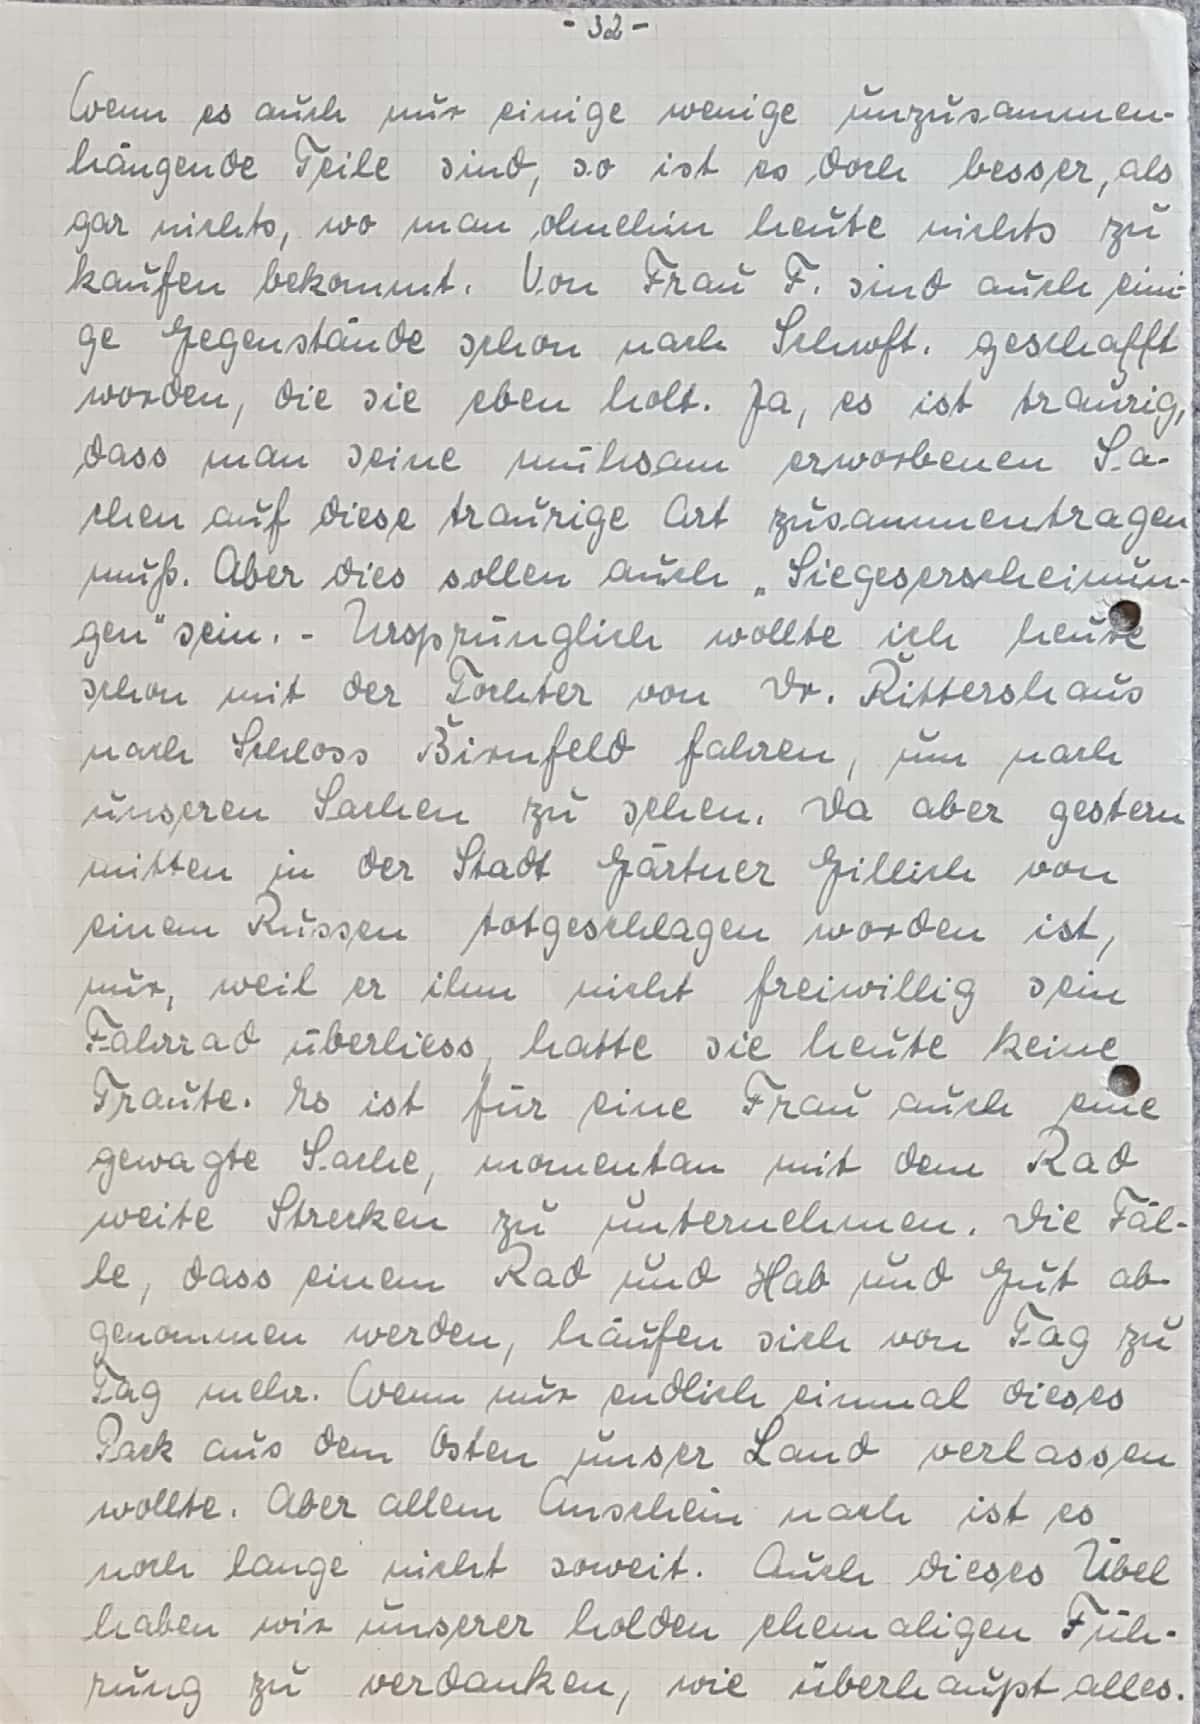 - 32 -
Wenn es auch nur einige wenige unzusammen-
hängende Teile sind, so ist es doch besser, als
gar nichts, wo man ohnehin heute nichts zu
kaufen bekommt. Von Frau F. sind auch eini-
ge Gegenstände schon nach Schwft. geschafft
worden, die sie eben holt. Ja, es ist traurig,
dass man seine mühsam erworbenen Sa-
chen auf diese traurige Art zusammentragen
muß. Aber dies sollen auch „Siegeserscheinun-
gen" sein. - Ursprünglich wollte ich heute
schon mit der Tochter von Dr. Rittershaus
nach Schloss Birnfeld fahren, um nach
unseren Sachen zu sehen. Da aber gestern
mitten in der Stadt Gärtner Gillich von
einem Russen totgeschlagen worden ist,
nur, weil er ihm nicht freiwillig sein
Fahrrad überliess, hatte sie heute keine
Traute. Es ist für eine Frau auch eine
gewagte Sache, momentan mit dem Rad
weite Strecken zu unternehmen. Die Fäl-
le, dass einem Rad und Hab und Gut ab-
genommen werden, häufen sich von Tag zu
Tag mehr. Wenn nur endlich einmal dieses
Pack aus dem Osten unser Land verlassen
wollte. Aber allem Anschein nach ist es
noch lange nicht soweit. Auch dieses Übel
haben wir unserer holden ehemaligen Füh-
rung zu verdanken, wie überhaupt alles.